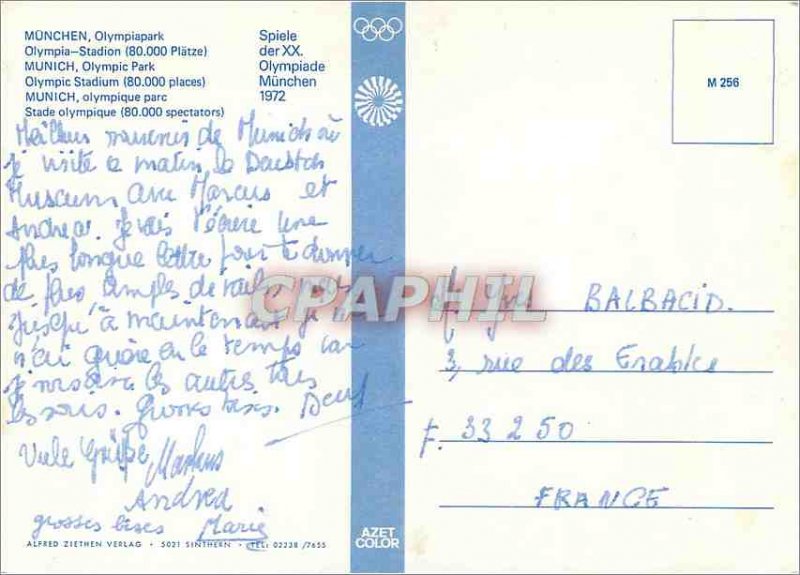 MÜNCHEN, Olympiapark
Olympia-Stadion (80.000 Plätze)
MUNICH, Olympic Park
Olympic Stadium (80.000 places)
MUNICH, olympique parc
Stade olympique (80.000 spectators)
Spiele
der XX.
Olympiade
München
1972
Meilleurs souvenirs de Munich où
je visite ce matin le Deutsches
Museum avec Marcus et
Andrea. Je vais t'écrire une
plus longue lettre pour te donner
de plus amples détails mais
jusqu'à maintenant je
n'ai guère eu le temps car
je les autres tous
les soirs. Grosses bises.
Viele Grüße Markus
Andrea
grosses bises Marie
ALFRED ZIETHEN VERLAG • 5021 SINTHERN • TEL: 02238 /7655
AZET
COLOR
M 256
CPAPHIL
M. Yves BALBACID.
3, rue des Erables
F. 33 250
FRANCE